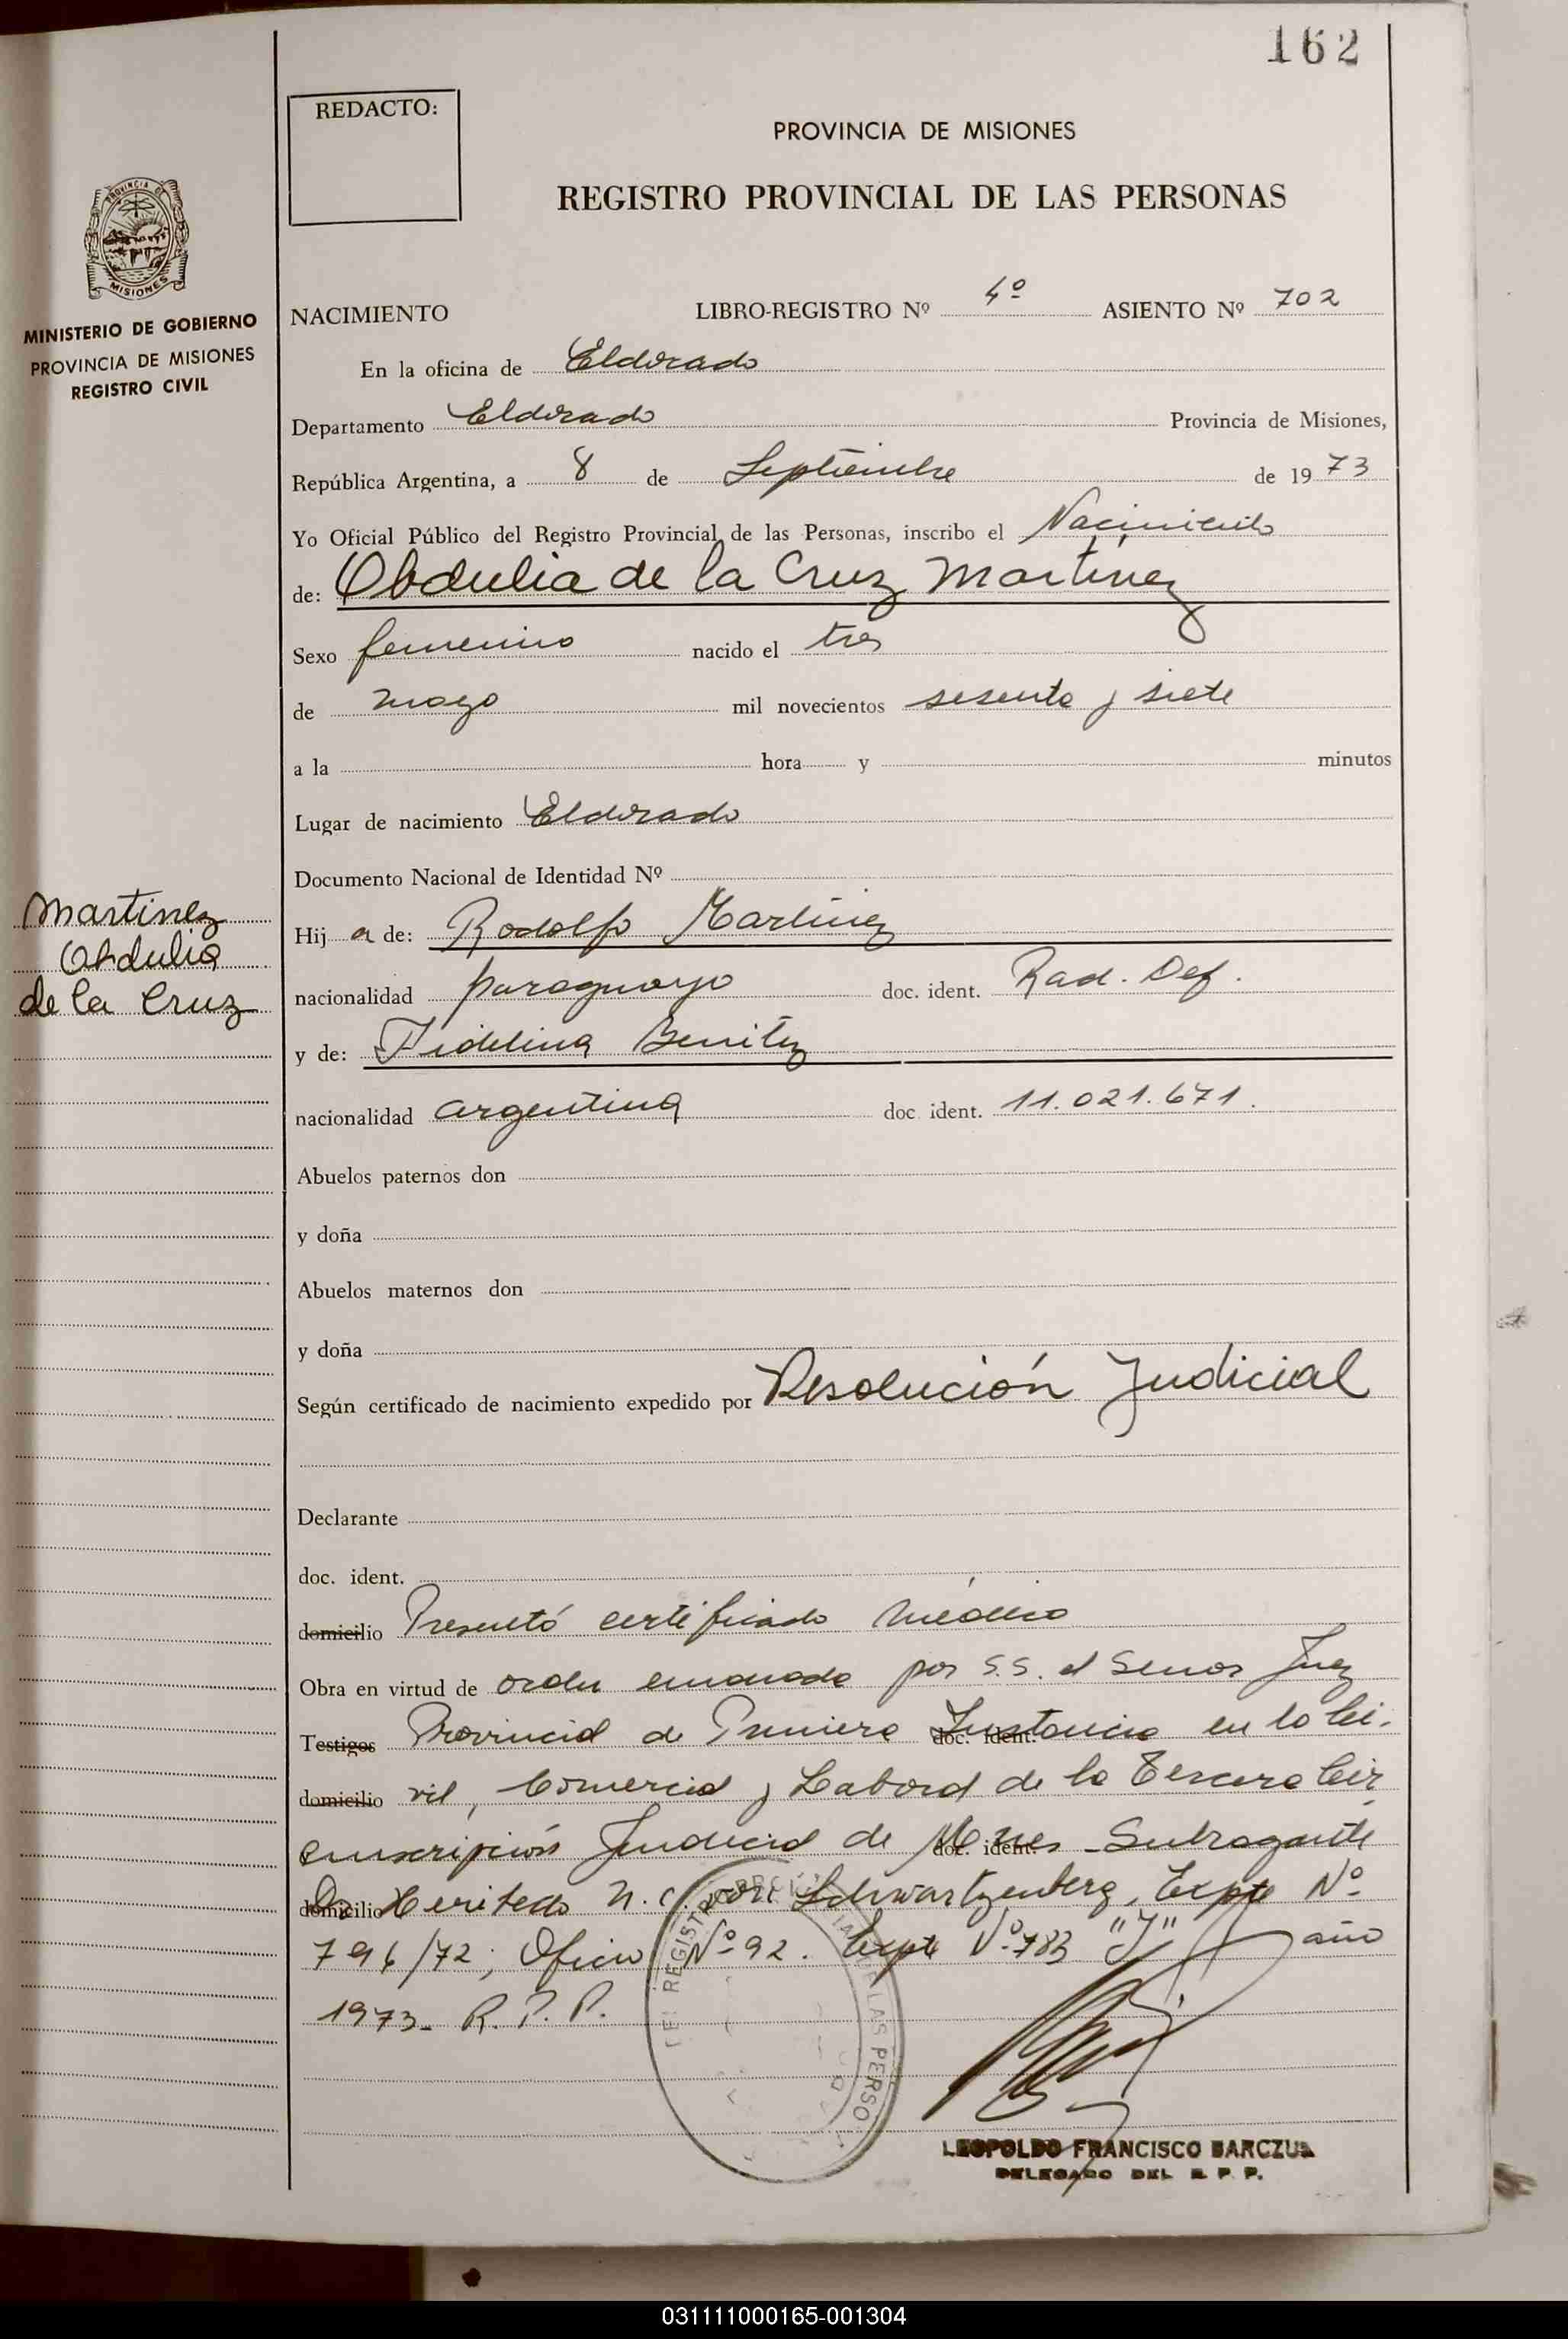 162
REDACTO:
PROVINCIA DE MISIONES
REGISTRO PROVINCIAL DE LAS PERSONAS
PROVINCIA DE
MISIONES
MINISTERIO DE GOBIERNO
PROVINCIA DE MISIONES
REGISTRO CIVIL
NACIMIENTO LIBRO-REGISTRO Nº 4º ASIENTO Nº 702
En la oficina de Eldorado
Departamento Eldorado Provincia de Misiones,
República Argentina, a 8 de Septiembre de 1973
Yo Oficial Público del Registro Provincial de las Personas, inscribo el Nacimiento
de: Obdulia de la Cruz Martínez
Sexo femenino nacido el tres
de mayo mil novecientos sesenta y siete
a la hora y minutos
Lugar de nacimiento Eldorado
Documento Nacional de Identidad Nº
Martinez
Obdulia
de la Cruz
Hij a de: Rodolfo Martínez
nacionalidad paraguayo doc. ident. Rad. Def.
y de: Fidelina Benitez
nacionalidad argentina doc. ident. 11.021.671.
Abuelos paternos don
y doña
Abuelos maternos don
y doña
Según certificado de nacimiento expedido por Resolución Judicial
Declarante
doc. ident.
domicilio Presentó certificado médico
Obra en virtud de orden emanada por S.S. el Senor Juez
Testigos Provincial de Primera doc. ident. Instancia en lo Ci-
domicilio vil, Comercial y Laboral de la Tercera Cir
cunscripción Judicial de Mnes doc. ident. Subrogante
domicilio Dr. N. Schwartzenberg, Expte Nº
796/72; Oficio Nº 92. Expte Nº 783 "J" año
1973- R. P. P.
REGISTRO PROVINCIAL DE LAS PERSO
LEOPOLDO FRANCISCO BARCZUK
DELEGADO DEL R. P. P.
031111000165-001304